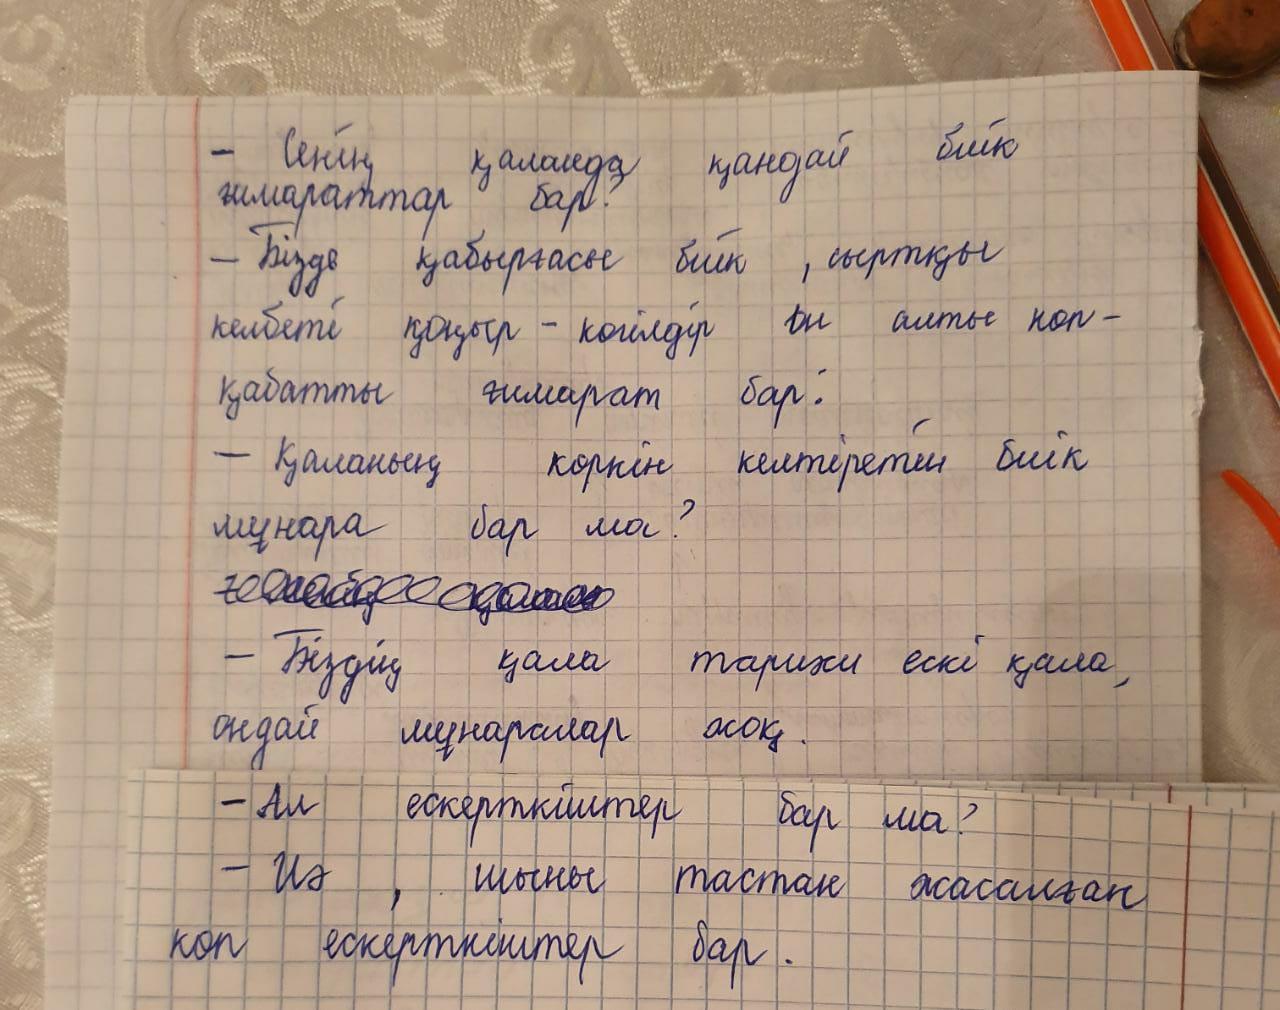 - Сенің қаланда қандай биік
ғимараттар бар?
- Бізде қабырғасы биік, сыртқы
келбеті қоңыр - когілдір он алты коп-
қабатты ғимарат бар.
- Қаланың коркін келтіретін биік
мұнара бар ма?
- Біздің қала тарихи ескі қала,
ондай мұнаралар жоқ.
- Ал ескерткіштер бар ма?
- Иә, шыны тастан жасалған
коп ескерткіштер бар.